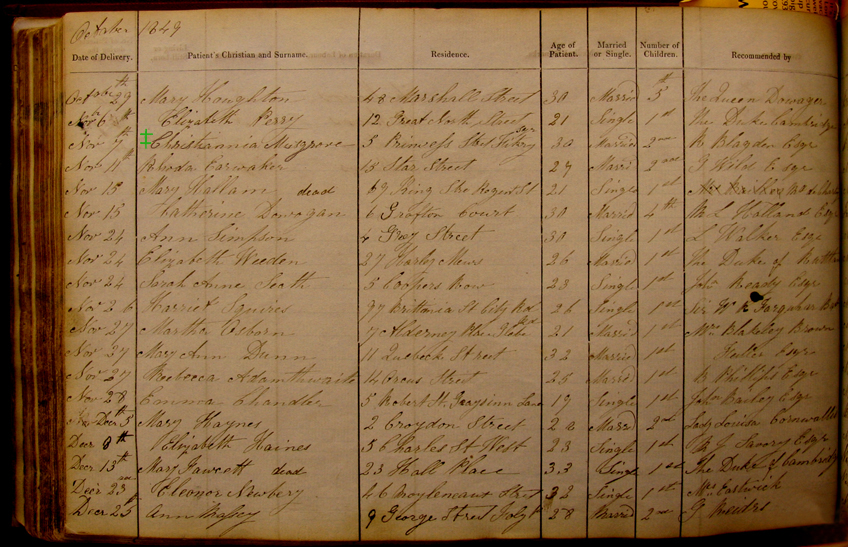 October 1849
Date of Delivery. Patient's Christian and Surname. Residence. Age of Patient. Married or Single. Number of Children. Recommended by
October 29th Mary Houghton 48 Marshall Street 30 Married 5th The Queen Dowager
Novr 6th Elizabeth Perry 12 Great North Street 21 Single 1st The Duke Cambridge
Nov 7th Christiannia Musgrove 5 Princess Street 30 Married 2nd R Blagden Esqr
Nov 11th Rhoda Earwaker 15 Star Street 27 Marrd 2nd J Wild Esqr
Nov 15 Mary Hallam dead 69 King St Regent St 21 Single 1st
Nov 15 Katherine Donogan 6 Grafton Court 30 Married 4th L Hallands Esqr
Nov 24 Ann Simpson 4 Grey Street 30 Single 1st L Walker Esqr
Nov 24 Elizabeth Weedon 27 Harley Mews 26 Married 1st The Duke of
Nov 24 Sarah Anne Scoth 5 Coopers Row 23 Single 1st John Ready Esqr
Nov 26 Harriet Squires 97 Brittonia St City Rd 26 Single 1st Sir W R Farquhar
Nov 27 Martha Osborn 17 Alderney Place 21 Married 1st Mrs Blakeley Brown
Nov 27 Mary Ann Dunn 11 Quebeck Street 32 Married 1st Esqr
Nov 27 Rebecca Adamthwaite 14 Circus Street 25 Married 1st R Phillips Esqr
Nov 28 Emma Chandler 5 Robert St Grays inn Lane 19 Single 1st John Bailey Esqr
Decr 5th Mary Haynes 2 Croydon Street 22 Marrd 2nd Lady Louisa Cornwallis
Decr 8th Elizabeth Haines 5 Charles St West 23 Single 1st J Savory Esqr
Decr 13th Mary Fawcett dead 23 Hall Place 33 Single 1st The Duke of Cambridge
Decr 23 Eleonor Newbery 46 Street 32 Single 1st Mrs Eastwick
Decr 25th Ann 9 George Street 28 Married 2nd